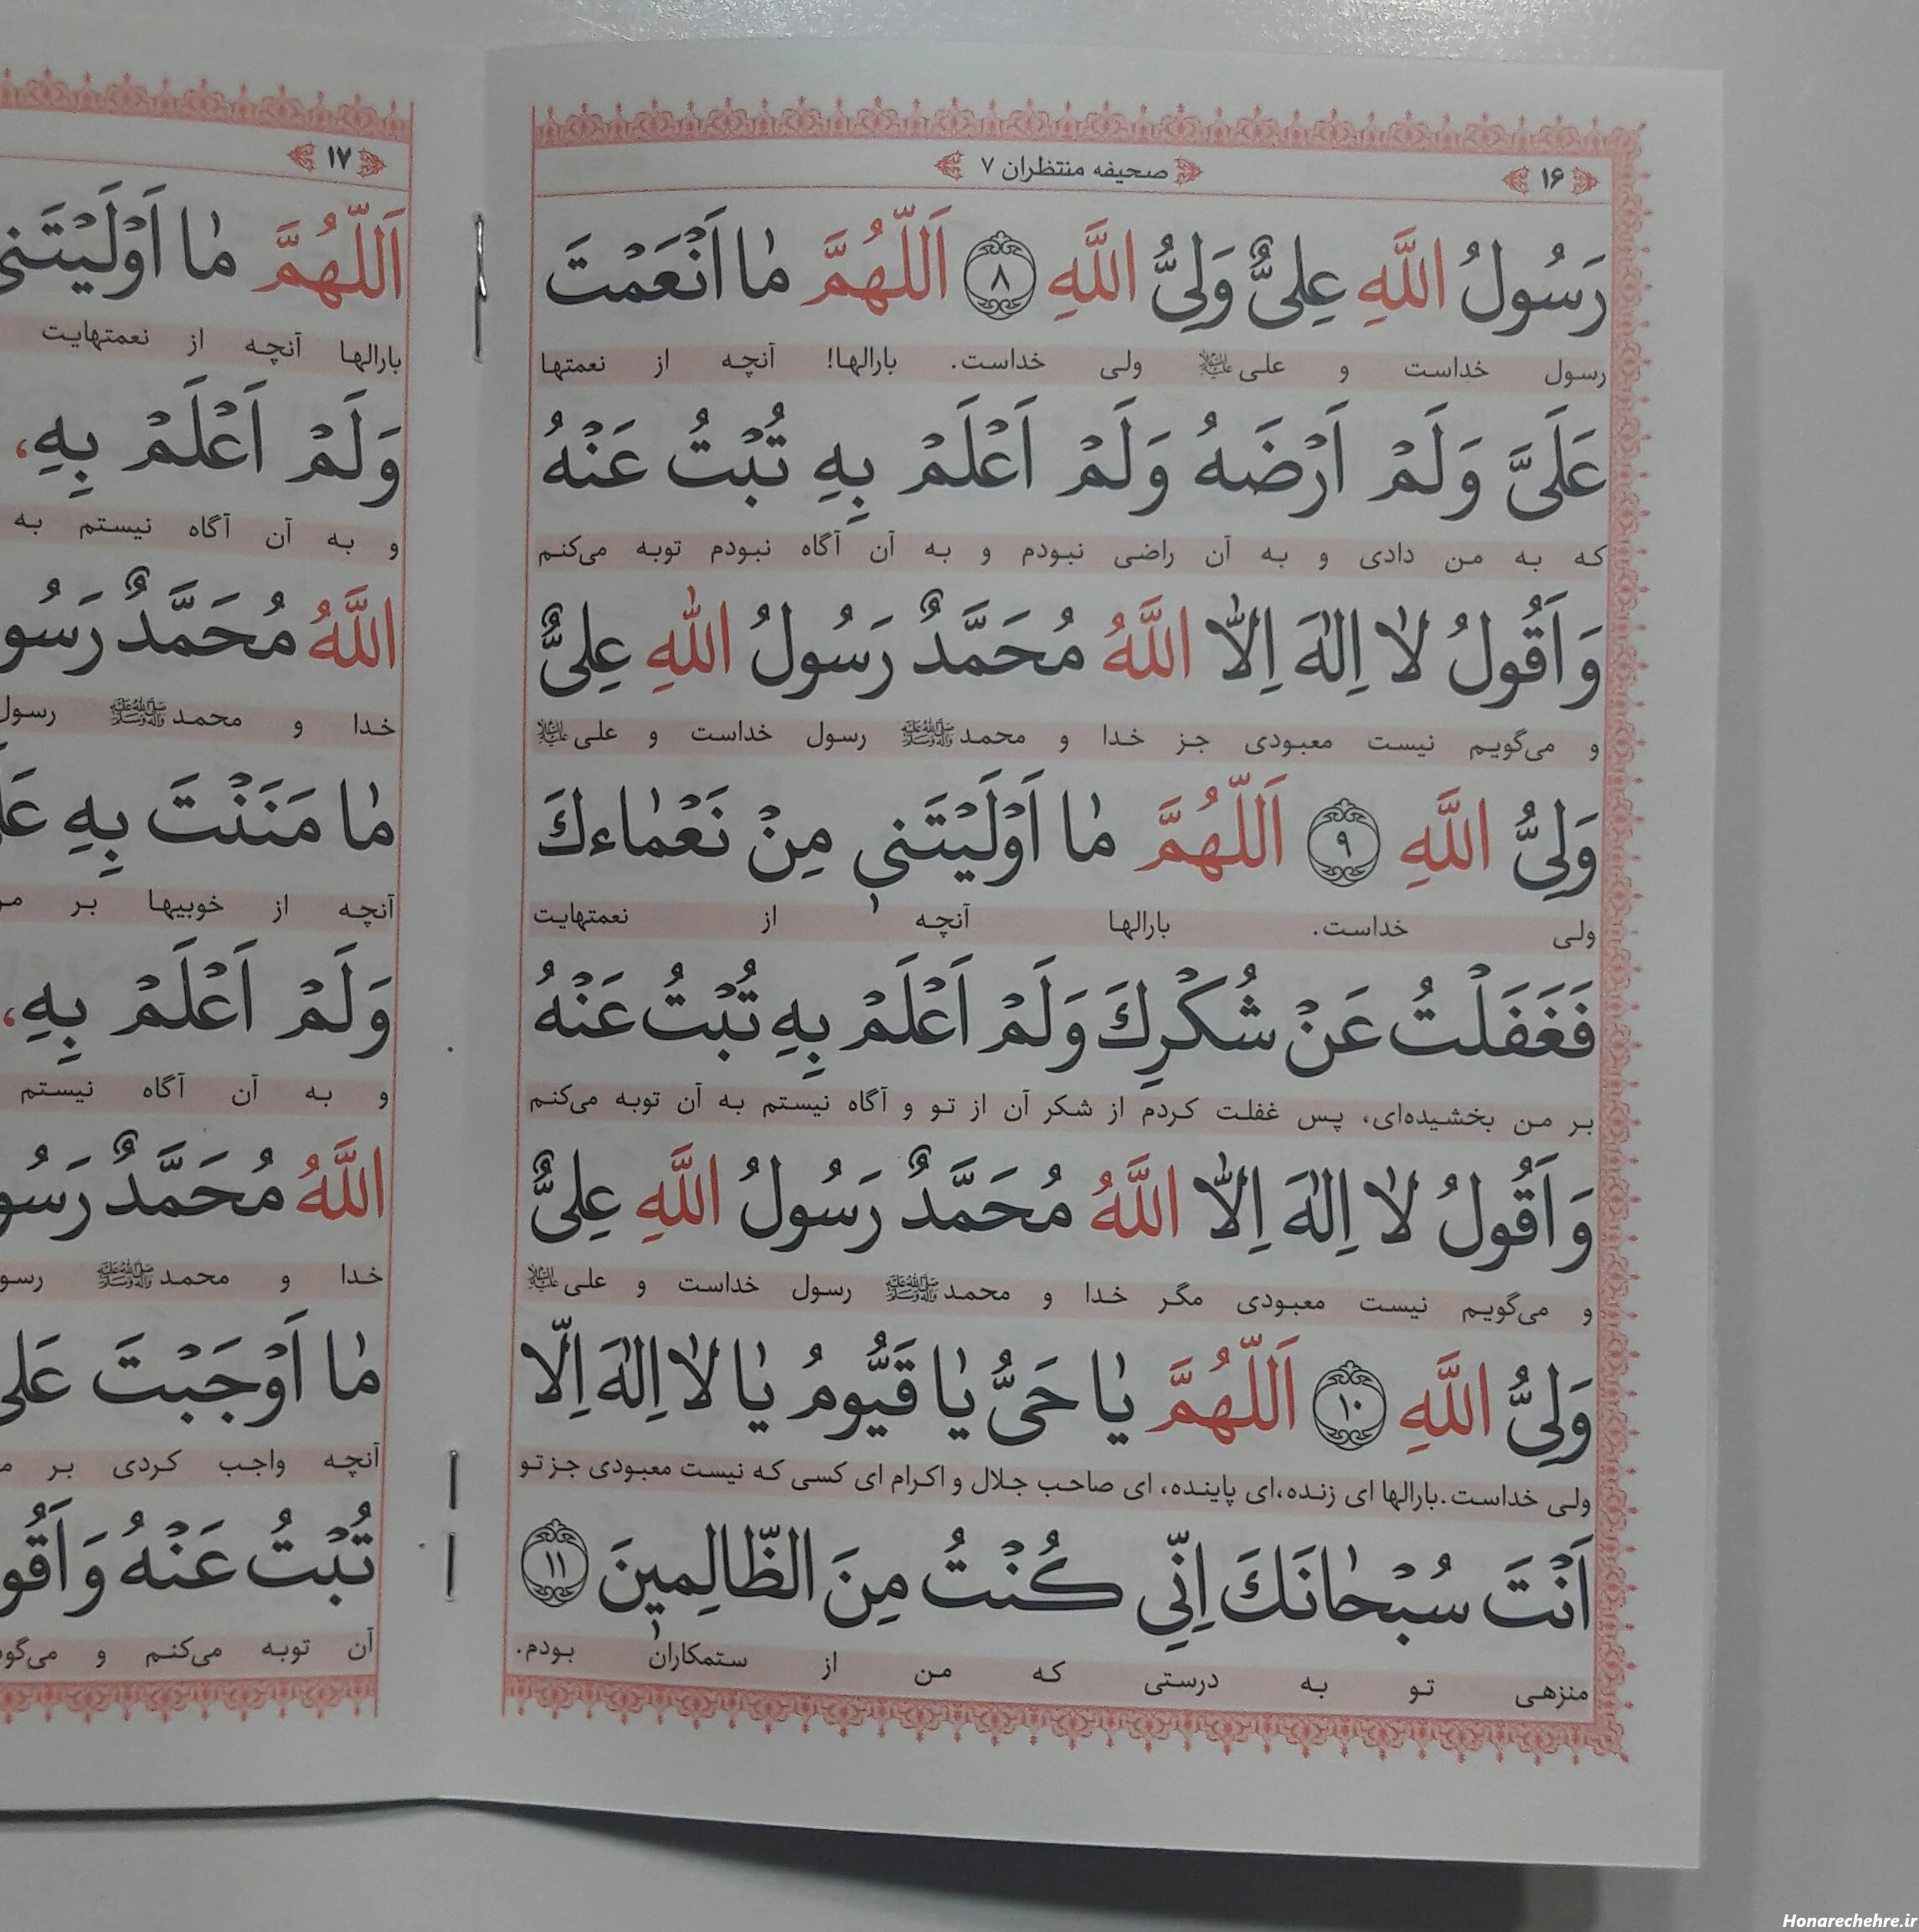 ۱۶
صحیفه منتظران ۷
رَسُولُ اللَّهِ عِلىٌّ وَلِىُّ اللَّهِ ۸ اَللّهُمَّ مٰا اَنْعَمْتَ
رسول خداست و علی علیه‌السلام ولی خداست. بارالها! آنچه از نعمتها
عَلَىَّ وَلَمْ اَرْضَهُ وَلَمْ اَعْلَمْ بِهِ تُبْتُ عَنْهُ
که به من دادی و به آن راضی نبودم و به آن آگاه نبودم توبه می‌کنم
وَاَقُولُ لاٰ اِلٰهَ اِلاّٰ اللَّهُ مُحَمَّدٌ رَسُولُ اللهِ عِلىٌّ
و می‌گویم نیست معبودی جز خدا و محمد ﷺ رسول خداست و علی علیه‌السلام
وَلِىُّ اللَّهِ ۹ اَللّهُمَّ مٰا اَوْلَيْتَنى مِنْ نَعْمٰاءكَ
ولی خداست. بارالها آنچه از نعمتهایت
فَغَفَلْتُ عَنْ شُكْرِكَ وَلَمْ اَعْلَمْ بِهِ تُبْتُ عَنْهُ
بر من بخشیده‌ای، پس غفلت کردم از شکر آن از تو و آگاه نیستم به آن توبه می‌کنم
وَاَقُولُ لاٰ اِلٰهَ اِلاّٰ اللَّهُ مُحَمَّدٌ رَسُولُ اللَّهِ عِلىٌّ
و می‌گویم نیست معبودی مگر خدا و محمد ﷺ رسول خداست و علی علیه‌السلام
وَلِىُّ اللَّهِ ۱۰ اَللّهُمَّ يٰا حَىُّ يٰا قَيُّومُ يٰا لاٰ اِلٰهَ اِلّا
ولی خداست. بارالها ای زنده، ای پاینده، ای صاحب جلال و اکرام ای کسی که نیست معبودی جز تو
اَنْتَ سُبْحٰانَكَ اِنِّي كُنْتُ مِنَ الظّالِمينَ ۱۱
منزهی تو به درستی که من از ستمکاران بودم.
۱۷
اَللّهُمَّ مٰا اَوْلَيْتَنى
بارالها آنچه از نعمتهایت
وَلَمْ اَعْلَمْ بِهِ،
و به آن آگاه نیستم به
اللَّهُ مُحَمَّدٌ
خدا و محمد ﷺ رسول
مٰا مَنَنْتَ بِهِ
آنچه از خوبیها بر
وَلَمْ اَعْلَمْ بِهِ،
و به آن آگاه نیستم
اللَّهُ مُحَمَّدٌ
خدا و محمد ﷺ
مٰا اَوْجَبْتَ
آنچه واجب کردی بر
تُبْتُ عَنْهُ
آن توبه می‌کنم و
Honarechehre.ir